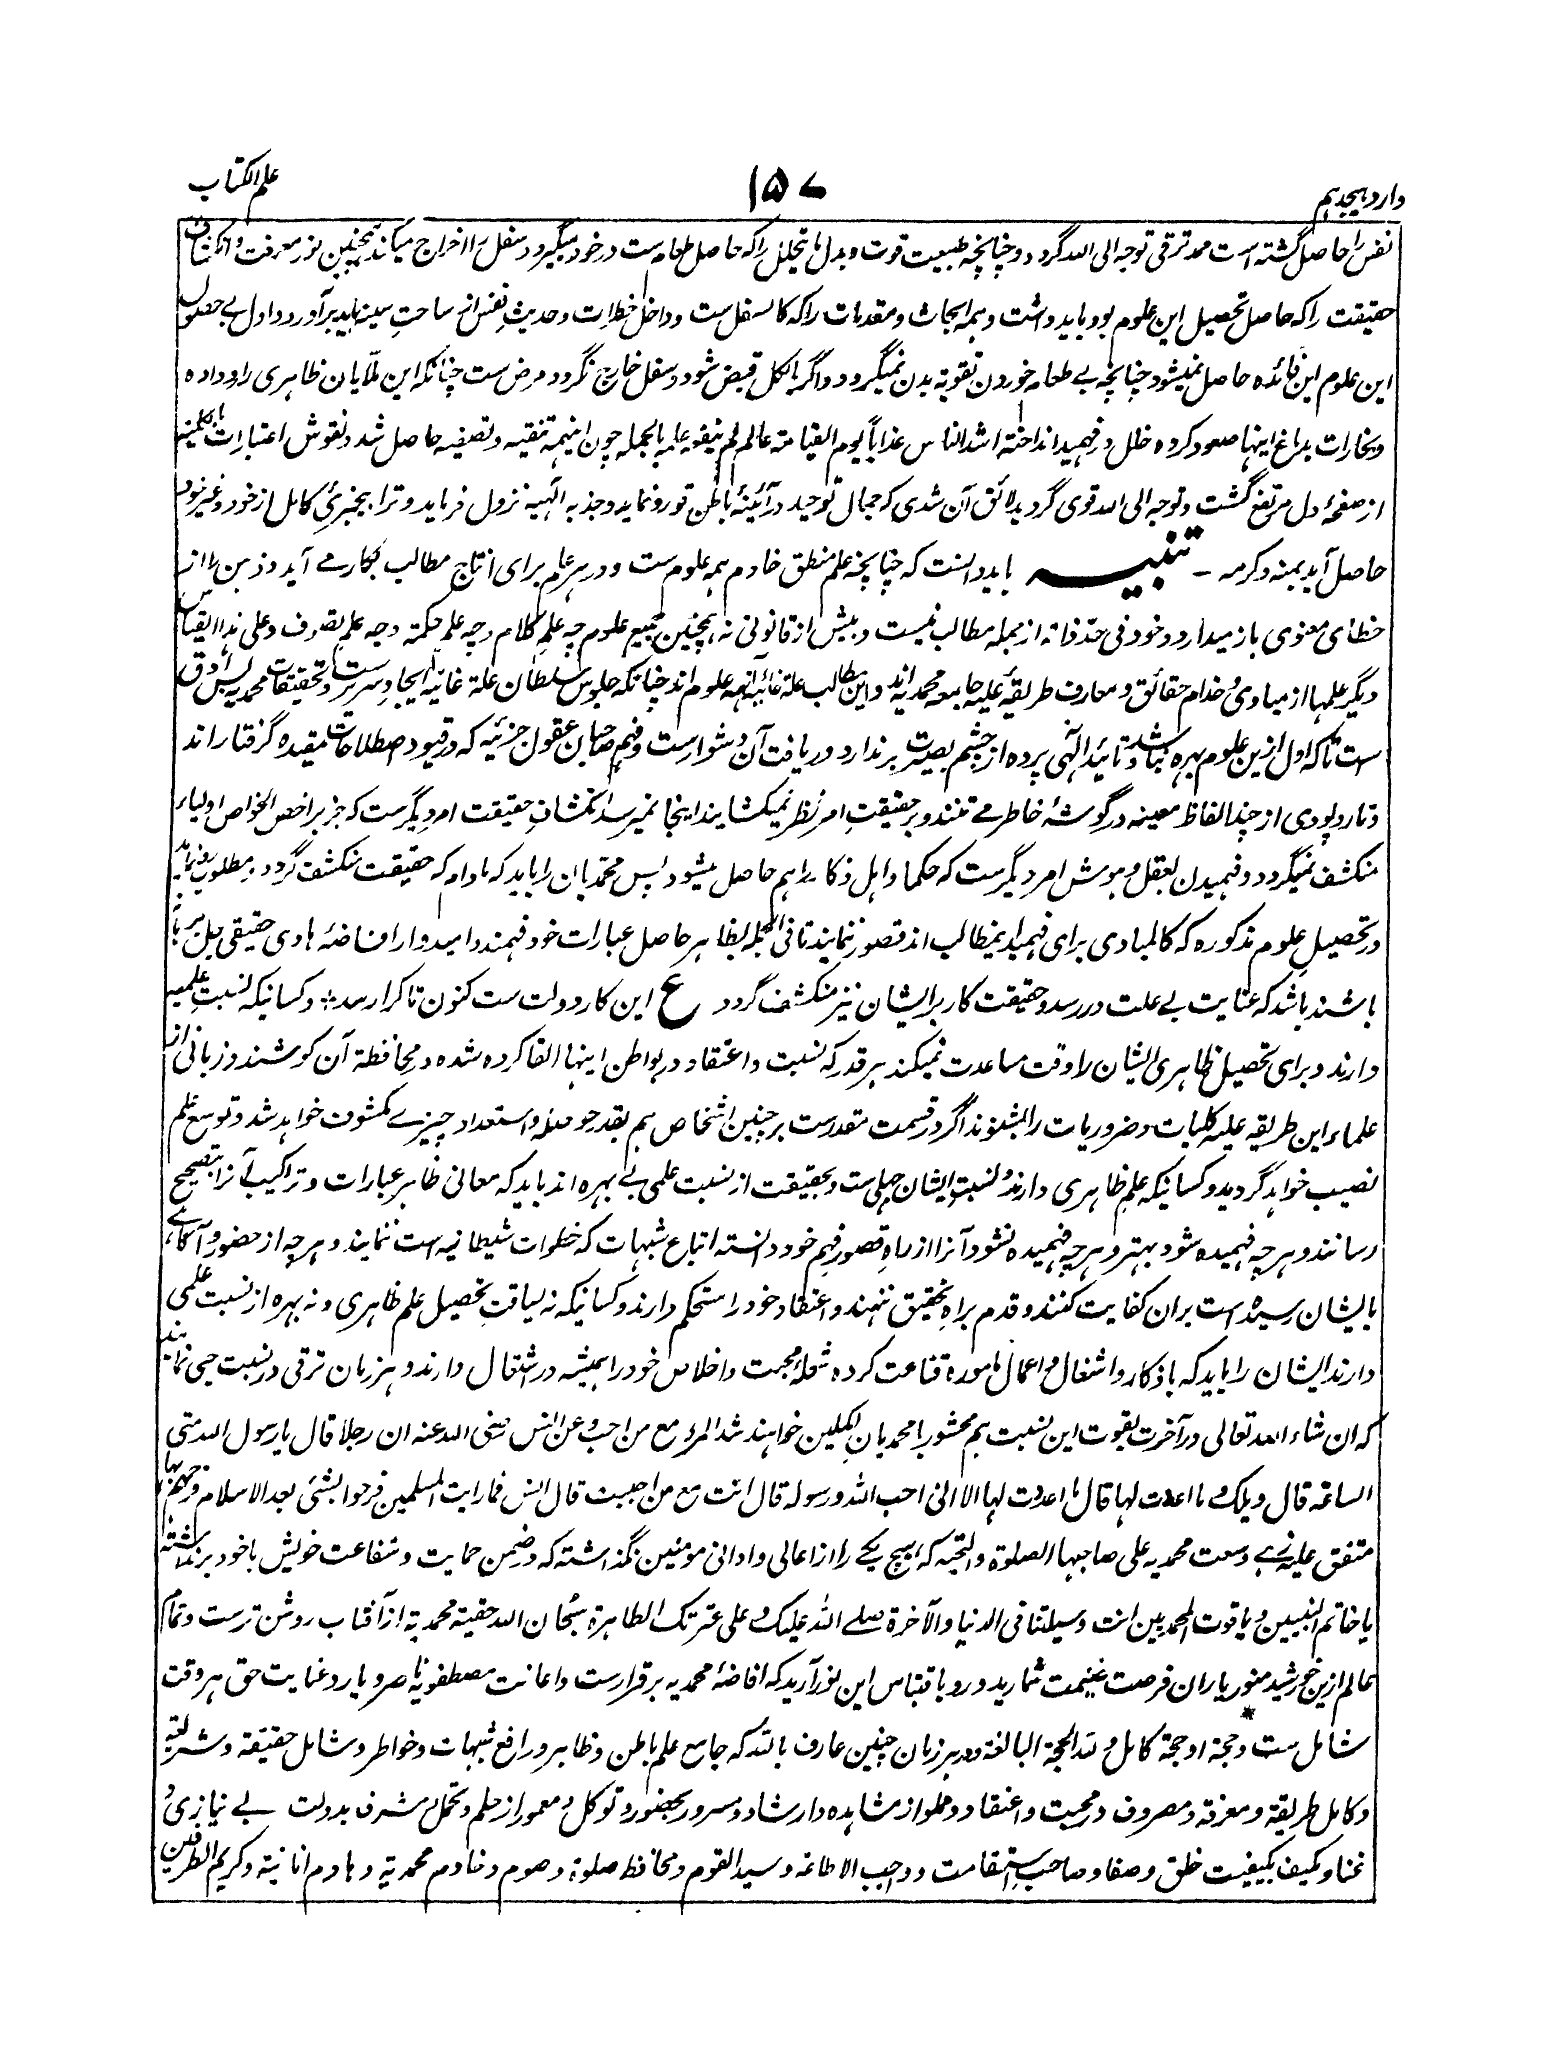 وارد هیجدهم
۱۵۷
علم الکتاب
نفس را حاصل گشته است ممد ترقی توجه الی الله گردد و چنانچه طبیعت قوت و بدل ما یتحلل را که حاصل طعام ست در خود میگیرد و سفل را اخراج میکند همچنین نور معرفت و انکشاف
حقیقت را که حاصل تحصیل این علوم بود باید داشت و همه ابحاث و مقدمات را که کالسفل ست و داخل خطرات و حدیث نفس از ساحت سینه باید برآورد و اول بے حصول
این علوم این فائده حاصل نمیشود چنانچه بے طعام خوردن تقویة بدن نمیگردد و اگر بالکل قبض شود و سفل خارج نگردد مرض ست چنانکه این ملایان ظاهری را رو داده
و بخارات بدماغ اینها صعود کرده خلل در فهمید انداخته اشد الناس عذاباً یوم القیامة عالم لم ینفعه علمه بالجمله چون اینهمه تنقیه و تصفیه حاصل شد و نقوش اعتبارات بالکلیه
از صفحۀ دل مرتفع گشت و توجه الی الله قوی گردید لائق آن شدی که جمال توحید در آئینۀ باطن تو رو نماید و جذبه الٓهیه نزول فرماید و ترا بیخبرئ کامل از خود و غیر خود
حاصل آید بمنه و کرمه ـ تنبیـــه باید دانست که چنانچه علم منطق خادم همه علوم ست و در هر علم برای انتاج مطالب بکار مے آید و ذهن را از
خطای معنوی باز میدارد و خود فی حد ذاته از جمله مطالب نیست و بیش از قانونی نه همچنین جمیع علوم چه علم کلام و چه علم حکمة و چه علم تصوف و علی هذا القیاس
دیگر علمها از مبادی و خدام حقائق و معارف طریقۀ علیه جامعه محمدیه اند و این مطالب علة غائیۀ آنهمه علوم اند چنانکه جلوس سلطان علة غائیه ایجاد سریر ست و تحقیقات محمدیه بس ادق
ست تا که اول ازین علوم بهره نباشد و تائید الٓهی پرده از چشم بصیرت برندارد دریافت آن دشوار ست و فهم صاحبان عقول جزئیه که در قیود اصطلاحات مقیده گرفتار اند
و تار و پودی از چند الفاظ معینه در گوشۀ خاطر مے تنند و بر حقیقت امر نظر نمیکشایند اینجا نمیرسد انکشاف حقیقت امر دیگر ست که جز بر اخص الخواص اولیاء
منکشف نمیگردد و فهمیدن بعقل و هوش امر دیگر ست که حکما و اهل ذکا را هم حاصل میشود پس محمدیان را باید که مادام که حقیقت منکشف گردد و مطلوب رو نماید
در تحصیل علوم مذکوره که کالمبادی برای فهمید این مطالب اند قصور ننمایند تا فی الجمله بظاهر حاصل عبارات خود فهمند و امیدوار افاضۀ هادی حقیقی جل برهانه
باشند باشد که عنایت بے علت در رسد و حقیقت کار بر ایشان نیز منکشف گردد ع این کار دولت ست کنون تا کرا رسد ؞ و کسانیکه نسبت علمیه
دارند و برای تحصیل ظاهری ایشان را وقت مساعدت نمیکند هر قدر که نسبت و اعتقاد در بواطن اینها القا کرده شده در محافظة آن کوشند و زبانی از
علماء این طریقه علیه کلیات و ضروریات را بشنوند اگر در قسمت مقدر ست بر چنین اشخاص هم بقدر حوصله و استعداد چیزے مکشوف خواهد شد و توسع علم
نصیب خواهد گردید و کسانیکه علم ظاهری دارند و نسبت ایشان جبلی ست و بحقیقت از نسبت علمی بے بهره اند باید که معانی ظاهر عبارات و تراکیب آنرا بتصحیح
رسانند و هر چه فهمیده شود بهتر و هر چه فهمیده نشود آنرا از راه قصور فهم خود دانسته اتباع شبهات که خطوات شیطانیه است ننمایند و هر چه از حضور و آگاهے
بایشان رسیده است بران کفایت کنند و قدم براه تحقیق ننهند و اعتقاد خود را مستحکم دارند و کسانیکه نه لیاقت تحصیل علم ظاهری و نه بهره از نسبت علمی
دارند ایشان را باید که باذکار و اشغال و اعمال ماموره قناعت کرده شعلۀ محبت و اخلاص خود را همیشه در اشتعال دارند و هر زمان ترقی در نسبت حبی نمایند
که ان شاء الله تعالی در آخرت بقوت این نسبت هم محشور با محمدیان کملین خواهند شد المرء مع من احب و عن انس رضی الله عنه ان رجلا قال یا رسول الله متی
الساعة قال ویلک و ما اعددت لها قال ما اعددت لها الا انی احب الله و رسوله قال انت مع من احببت قال انس فما رایت المسلمین فرحوا بشئ بعد الاسلام فرحهم بها
متفق علیه زهے وسعت محمدیه علی صاحبها الصلوة و التحیه که هیچ یکے را از اعالی و ادانی مومنین نگذاشته که در ضمن حمایت و شفاعت خویش باخود برنداشته
یا خاتم النبیین و یا قوت المحمدیین انت وسیلتنا فی الدنیا و الآخرة صلے الله علیک و علی عترتک الطاهرة سبحان الله حقیة محمدیه از آفتاب روشن تر ست و تمام
عالم ازین خورشید منور یاران فرصت غنیمت شمارید و رو باقتباس این نور آرید که افاضۀ محمدیه برقرار ست و اعانت مصطفویه ناصر و یار و عنایت حق هر وقت
شامل ست و حجة او حجة کامل و لله الحجة البالغة و در هر زمان چنین عارف بالله که جامع علم باطن و ظاهر و رافع شبهات و خواطر و شامل حقیقة و شریعة
و کامل طریقة و معرفة و مصروف در محبت و اعتقاد و مملو از مشاهده و ارشاد و مسرور بحضور و توکل و معمور از حلم و تحمل و مشرف بدولت بے نیازی و
غنا و مکیف بکیفیت خلق و صفا و صاحب استقامت و واجب الاطاعة و سید القوم و محافظ صلوة و صوم و خادم محمدیة و هادم انانیة و کریم الطرفین